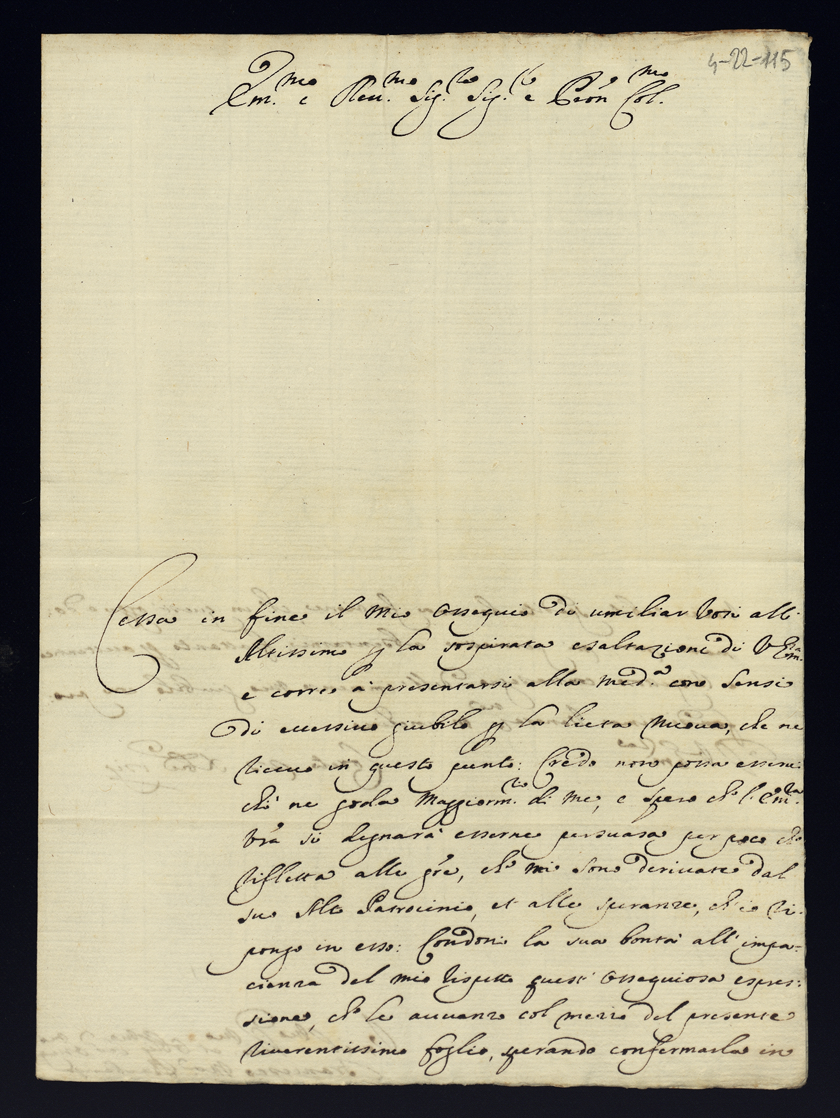 4-22-115
Em.mo e Reu.mo Sig.re Sig.re e Pròn Col.mo
Cessa in fine il mio ossequio di umiliar Voti all'
Altissimo p la sospirata esaltazione di V. Em.za
e corre à presentarsi alla med.a con sensi
di eccessiuo giubilo p la lieta nuoua, che ne
riceuo in questo punto: Credo non possa esserui
chi ne goda maggiorm.te di me, e spero che l'Em.za
Vrã si degnarà esserne persuasa per poco che
rifletta alle grẽ, che mi sono deriuate dal
suo Alto Patrocinio, et alle speranze, ch'io ri-
pongo in esso: Condoni la sua bontà all'impa-
cienza del mio rispetto quest'ossequiosa espres-
sione, che le auuanzo col mezzo del presente
riuerentissimo foglio, sperando confermarla in